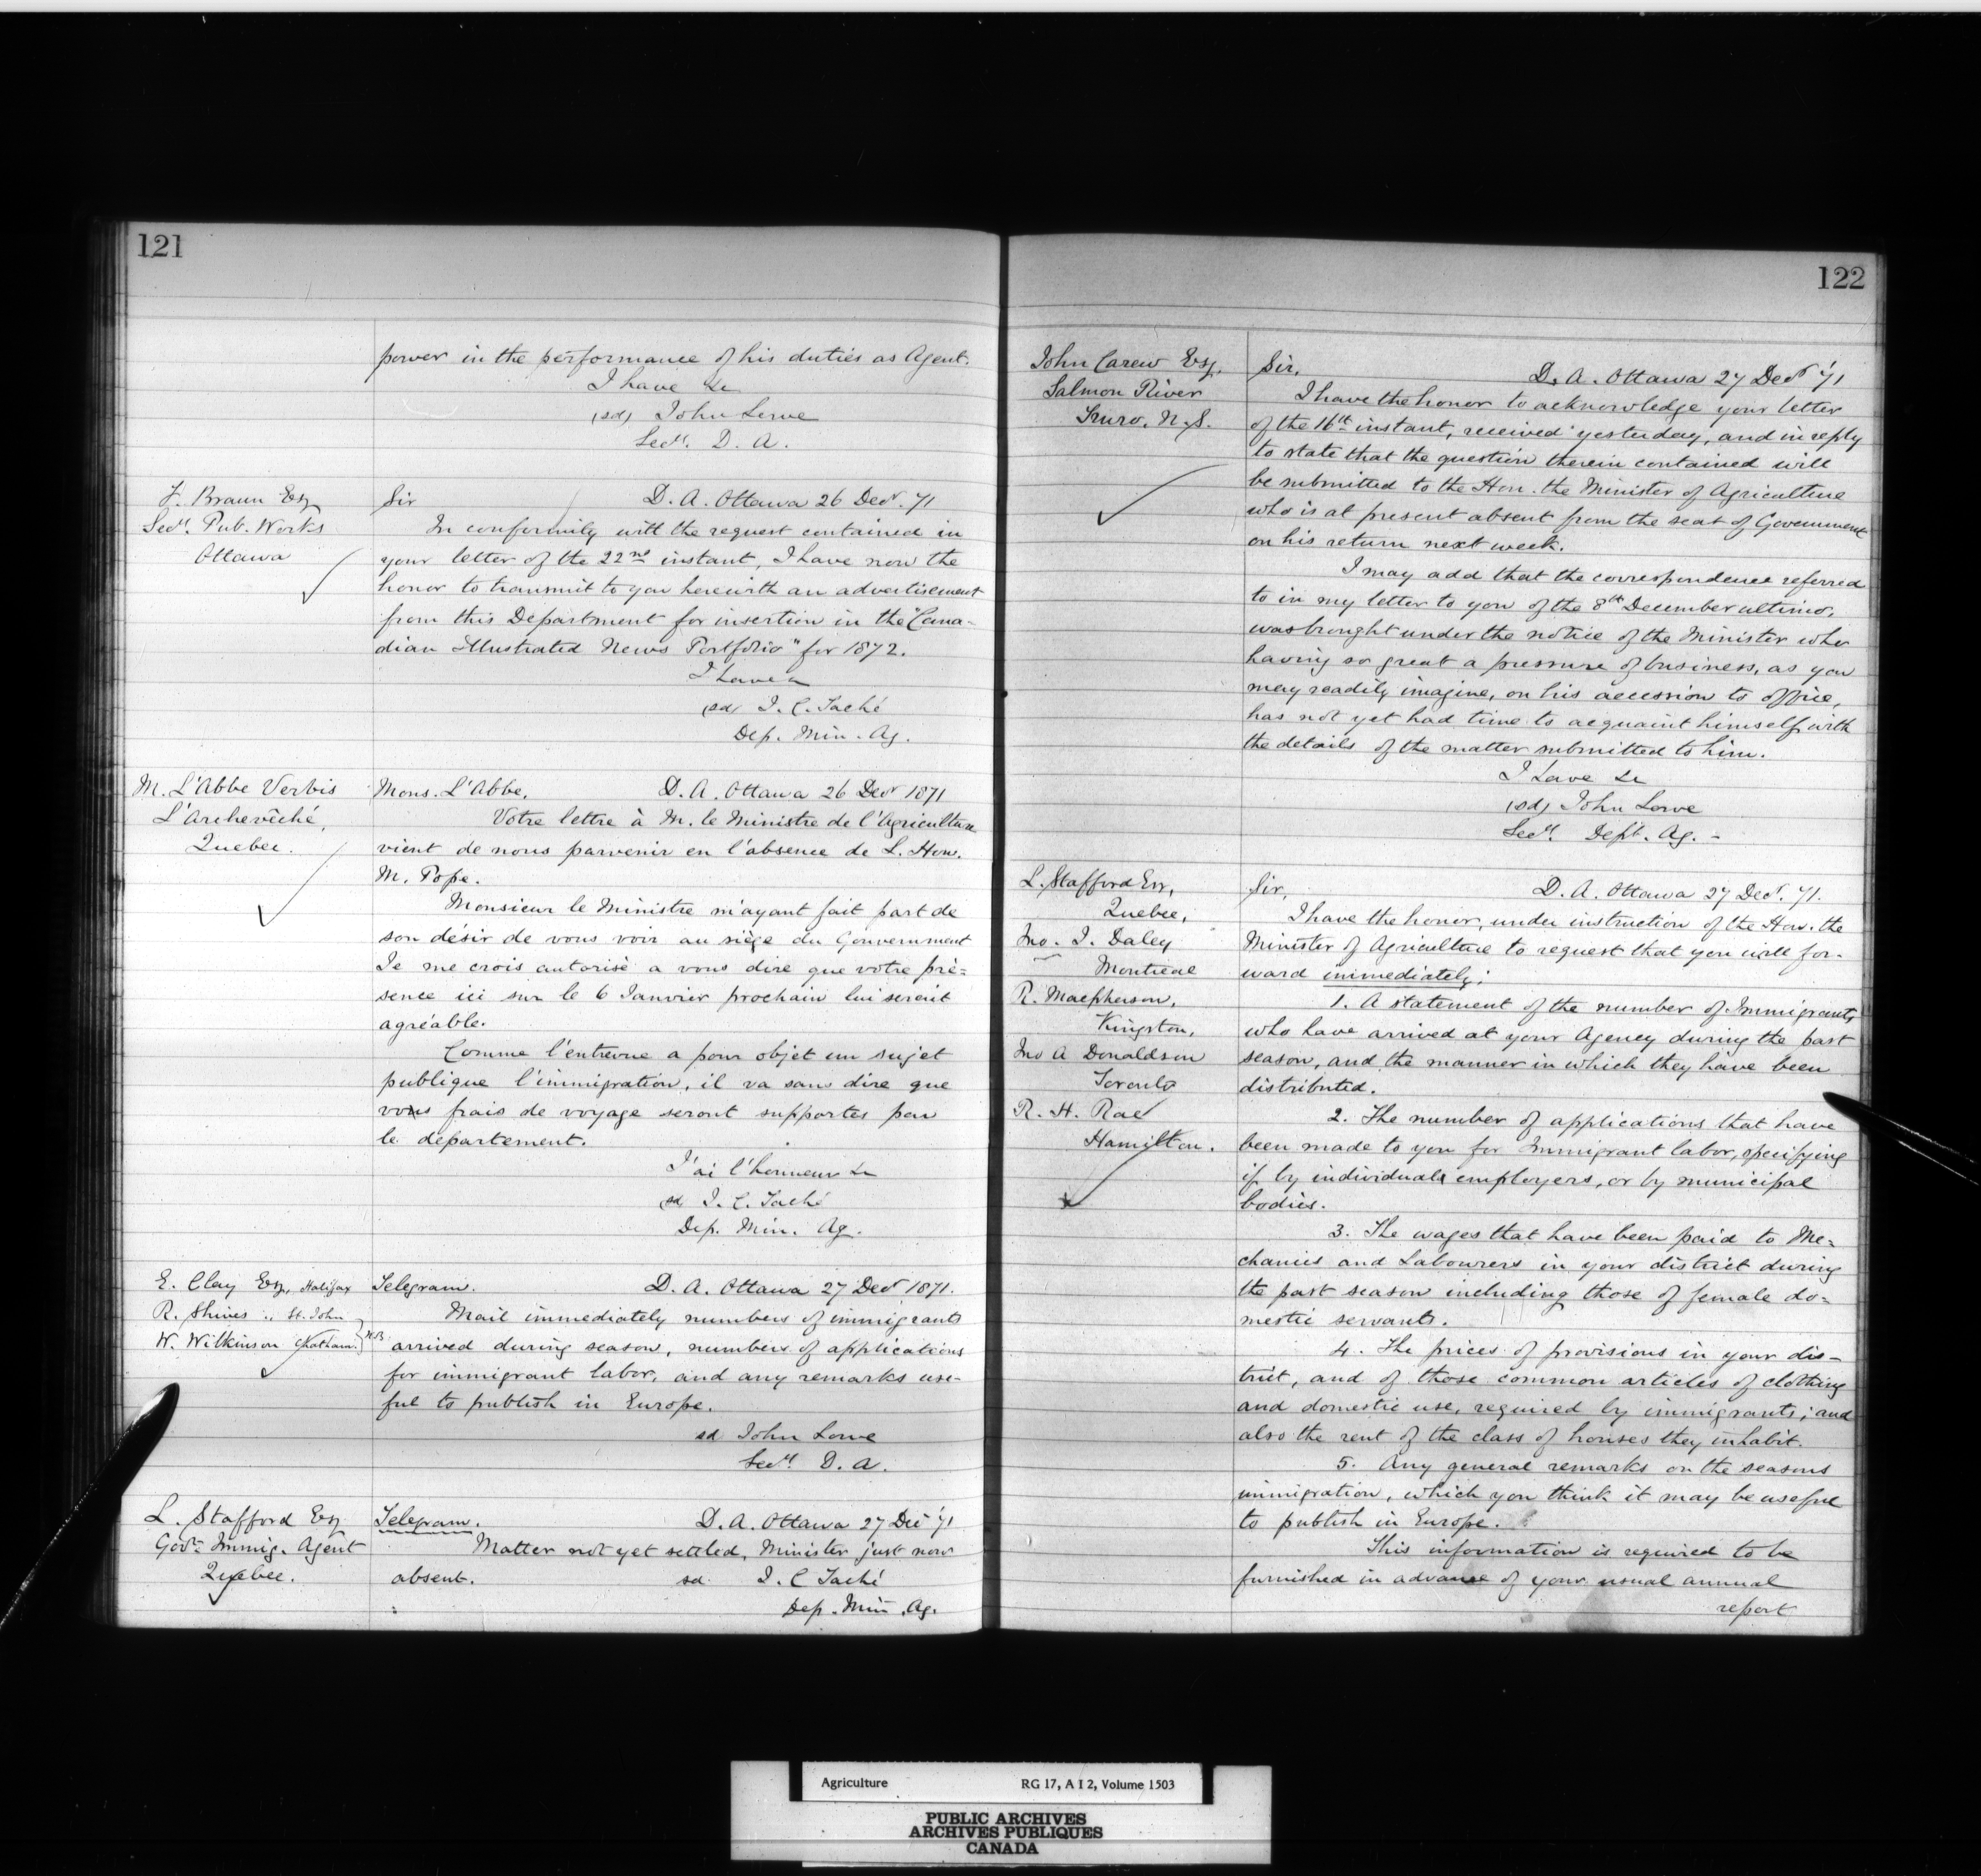 121
power in the performance of his duties as Agent.
I have &c
(sd) John Lowe
Secy. D. A.
F. Braun Esq
Secy. Pub. Works
Ottawa
Sir D. A. Ottawa 26 Decr. 71
In conformity with the request contained in
your letter of the 22nd instant, I have now the
honor to transmit to you herewith an advertisement
from this Department for insertion in the "Cana-
dian Illustrated News Portfolio" for 1872.
I have &c
(sd) J. C. Taché
Dep. Min. Ag.
M. L'Abbe Verbis
L'Archevêché,
Quebec.
Mons. L'Abbe, D. A. Ottawa 26 Decr 1871
Votre lettre à M. le Ministre de l'Agriculture
vient de nous parvenir en l'absence de L. Hon.
M. Pope.
Monsieur le Ministre m'ayant fait part de
son désir de vous voir au siège du Gouvernment
Je me crois autorisé a vous dire que votre pré=
sence ici sur le 6 Janvier prochain lui serait
agréable.
Comme l'entrevue a pour objet un sujet
publique l'immigration, il va sans dire que
vos frais de voyage seront supportes par
le département.
J'ai l'honneur &c
sd J. C. Taché
Dep. Min. Ag.
E. Clay Esq, Halifax
R. Shives " St. John
W. Wilkinson Chatham. } N.B.
Telegram. D. A. Ottawa 27 Decr 1871.
Mail immediately numbers of immigrants
arrived during season, numbers of applications
for immigrant labor, and any remarks use-
ful to publish in Europe.
sd John Lowe
Secy. D. A.
L. Stafford Esq
Govt. Immig. Agent
Quebec.
Telegram. D. A. Ottawa 27 Dec '71
Matter not yet settled, Minister just now
absent. sd. J. C Taché
Dep. Min. Ag.
122
John Carew Esq.
Salmon River
Truro, N.S.
Sir, D. A. Ottawa 27 Decr '71
I have the honor to acknowledge your letter
of the 16th instant, received yesterday, and in reply
to state that the question therein contained will
be submitted to the Hon. the Minister of Agriculture
who is at present absent from the seat of Government
on his return next week.
I may add that the correspondence referred
to in my letter to you of the 8th December ultimo,
was brought under the notice of the Minister who
having so great a pressure of business, as you
may readily imagine, on his accession to office,
has not yet had time to acquaint himself with
the details of the matter submitted to him.
I have &c
(sd) John Lowe
Secy. Dept. Ag. -
L. Stafford Esq,
Quebec,
Jno. J. Daley
Montreal
R. Macpherson,
Kingston,
Jno A Donaldson
Toronto
R. H. Rae
Hamilton.
Sir, D. A. Ottawa 27 Decr. 71.
I have the honor, under instruction of the Hon. the
Minister of Agriculture to request that you will for-
ward immediately:
1. A statement of the number of Immigrants,
who have arrived at your Agency during the past
season, and the manner in which they have been
distributed.
2. The number of applications that have
been made to you for Immigrant labor, specifying
if by individuals employers, or by municipal
bodies.
3. The wages that have been paid to Me=
chanics and Labourers in your district during
the past season including those of female do=
mestic servants.
4. The prices of provisions in your dis-
trict, and of those common articles of clothing
and domestic use, required by immigrants; and
also the rent of the class of houses they inhabit.
5. Any general remarks on the seasons
immigration, which you think it may be useful
to publish in Europe.
This information is required to be
furnished in advance of your usual annual
report
Agriculture RG 17, A I 2, Volume 1503
PUBLIC ARCHIVES
ARCHIVES PUBLIQUES
CANADA